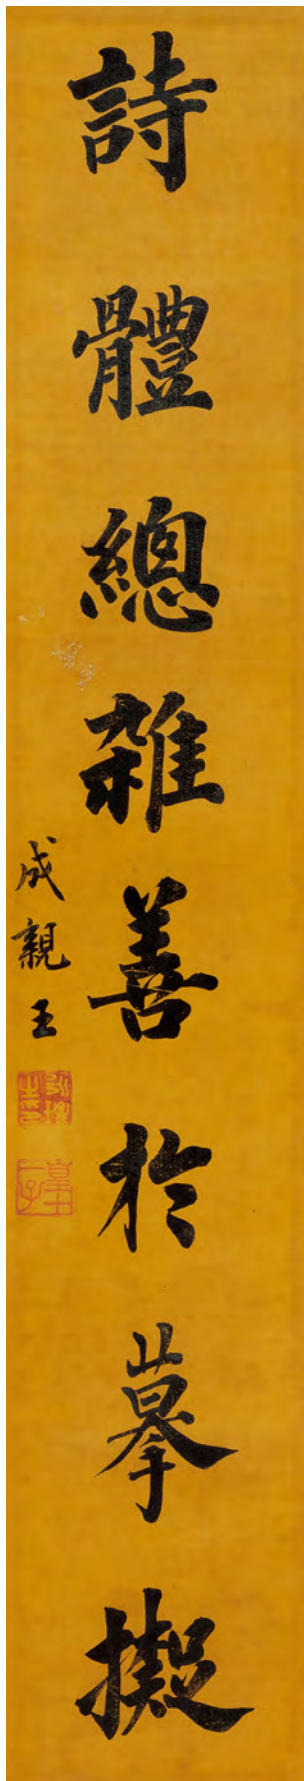 詩體總雜善於摹擬
成親王